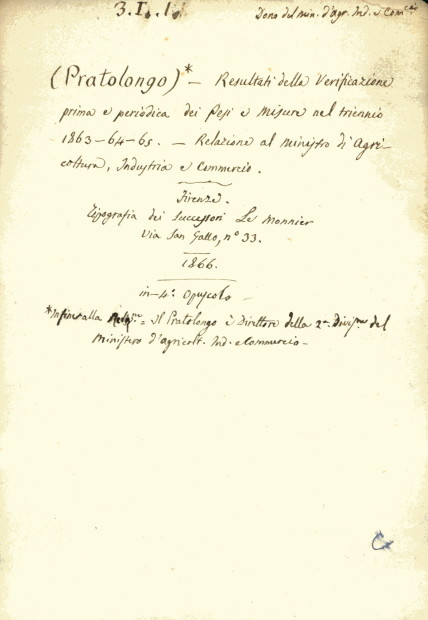 3.I.1.
Dono del Min. d'agr. Ind. e Com.cio
(Pratolongo)* — Resultati della Verificazione
prima e periodica dei Pesi e Misure nel triennio
1863-64-65. — Relazione al ministro di Agri-
coltura, Industria e Commercio.
Firenze.
Tipografia dei Successori Le Monnier
Via San Gallo, n° 33.
1866.
in-4°. Opuscolo
*In fine alla = Il Pratolongo è Direttore della 2a. Divis.ne del
Ministero d'agricolt. Ind. e Commercio—